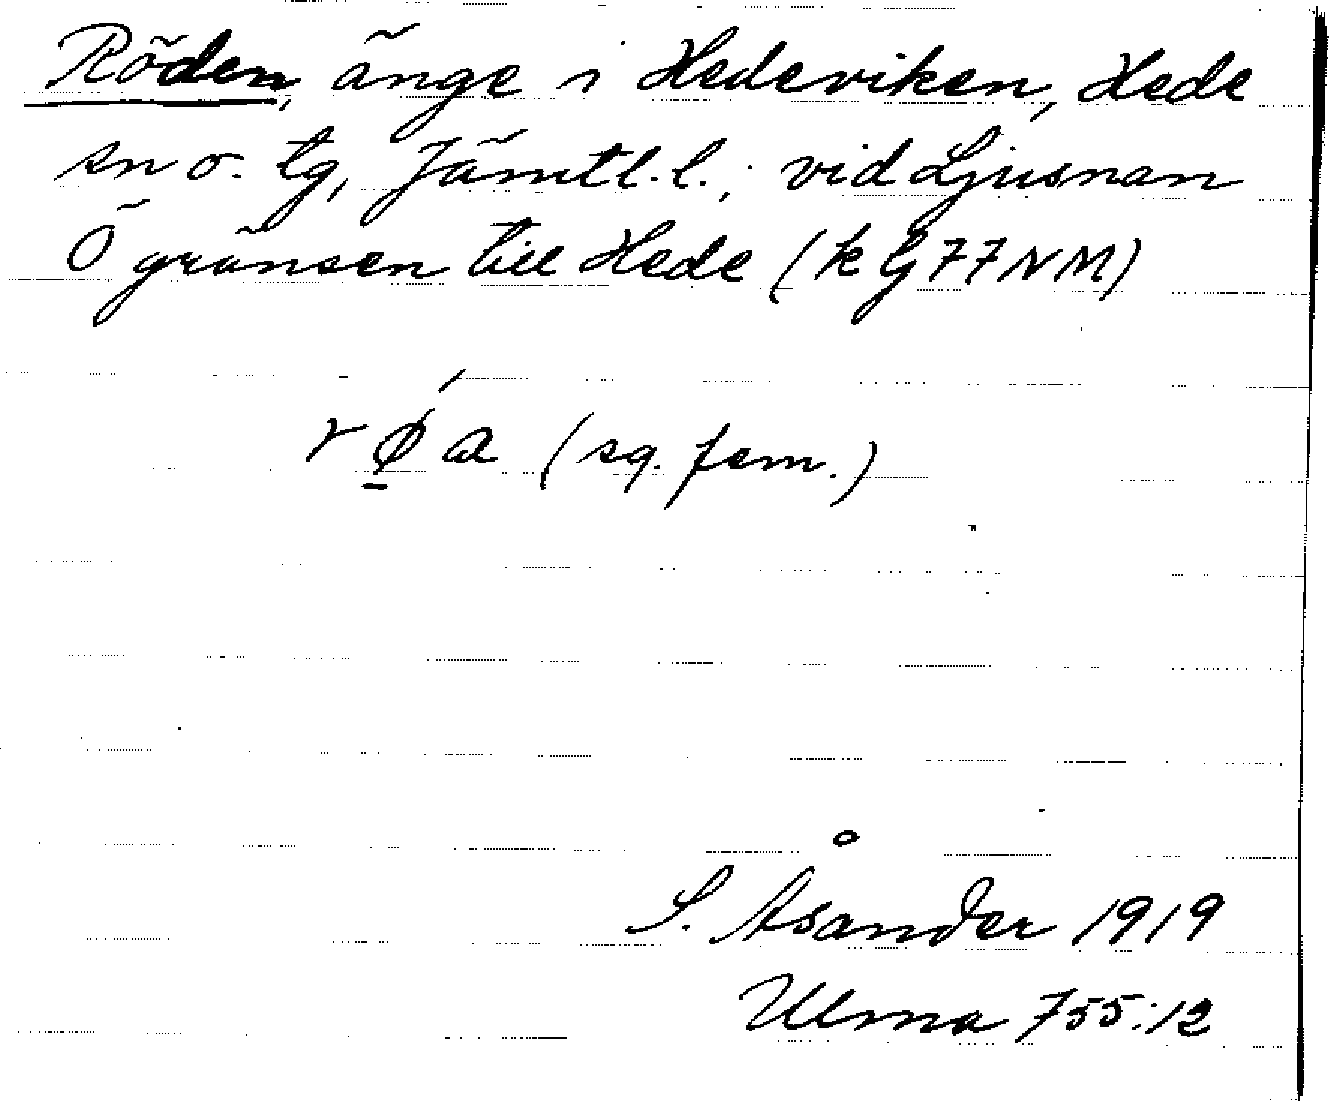 Röden, änge i Hedeviken, Hede
sn o. tg, Jämtl. l.; vid Ljusnan
Ö gränsen till Hede (k G77NM)
rǿ̱a (sg. fem.)
S. Åsander 1919
Ulma 755:12